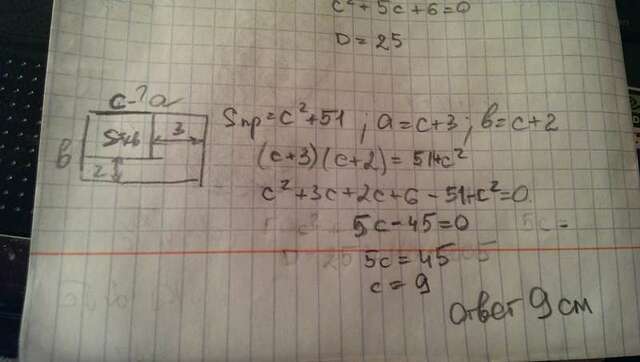 c²+5c+6=0
D=25
c-? a
Sкв
3
в
2
Sпр=c²+51 ; a=c+3 ; в=c+2
(c+3)(c+2)=51+c²
c²+3c+2c+6-51+c²=0
5c-45=0
5c=
5c=45
c=9
ответ 9 см